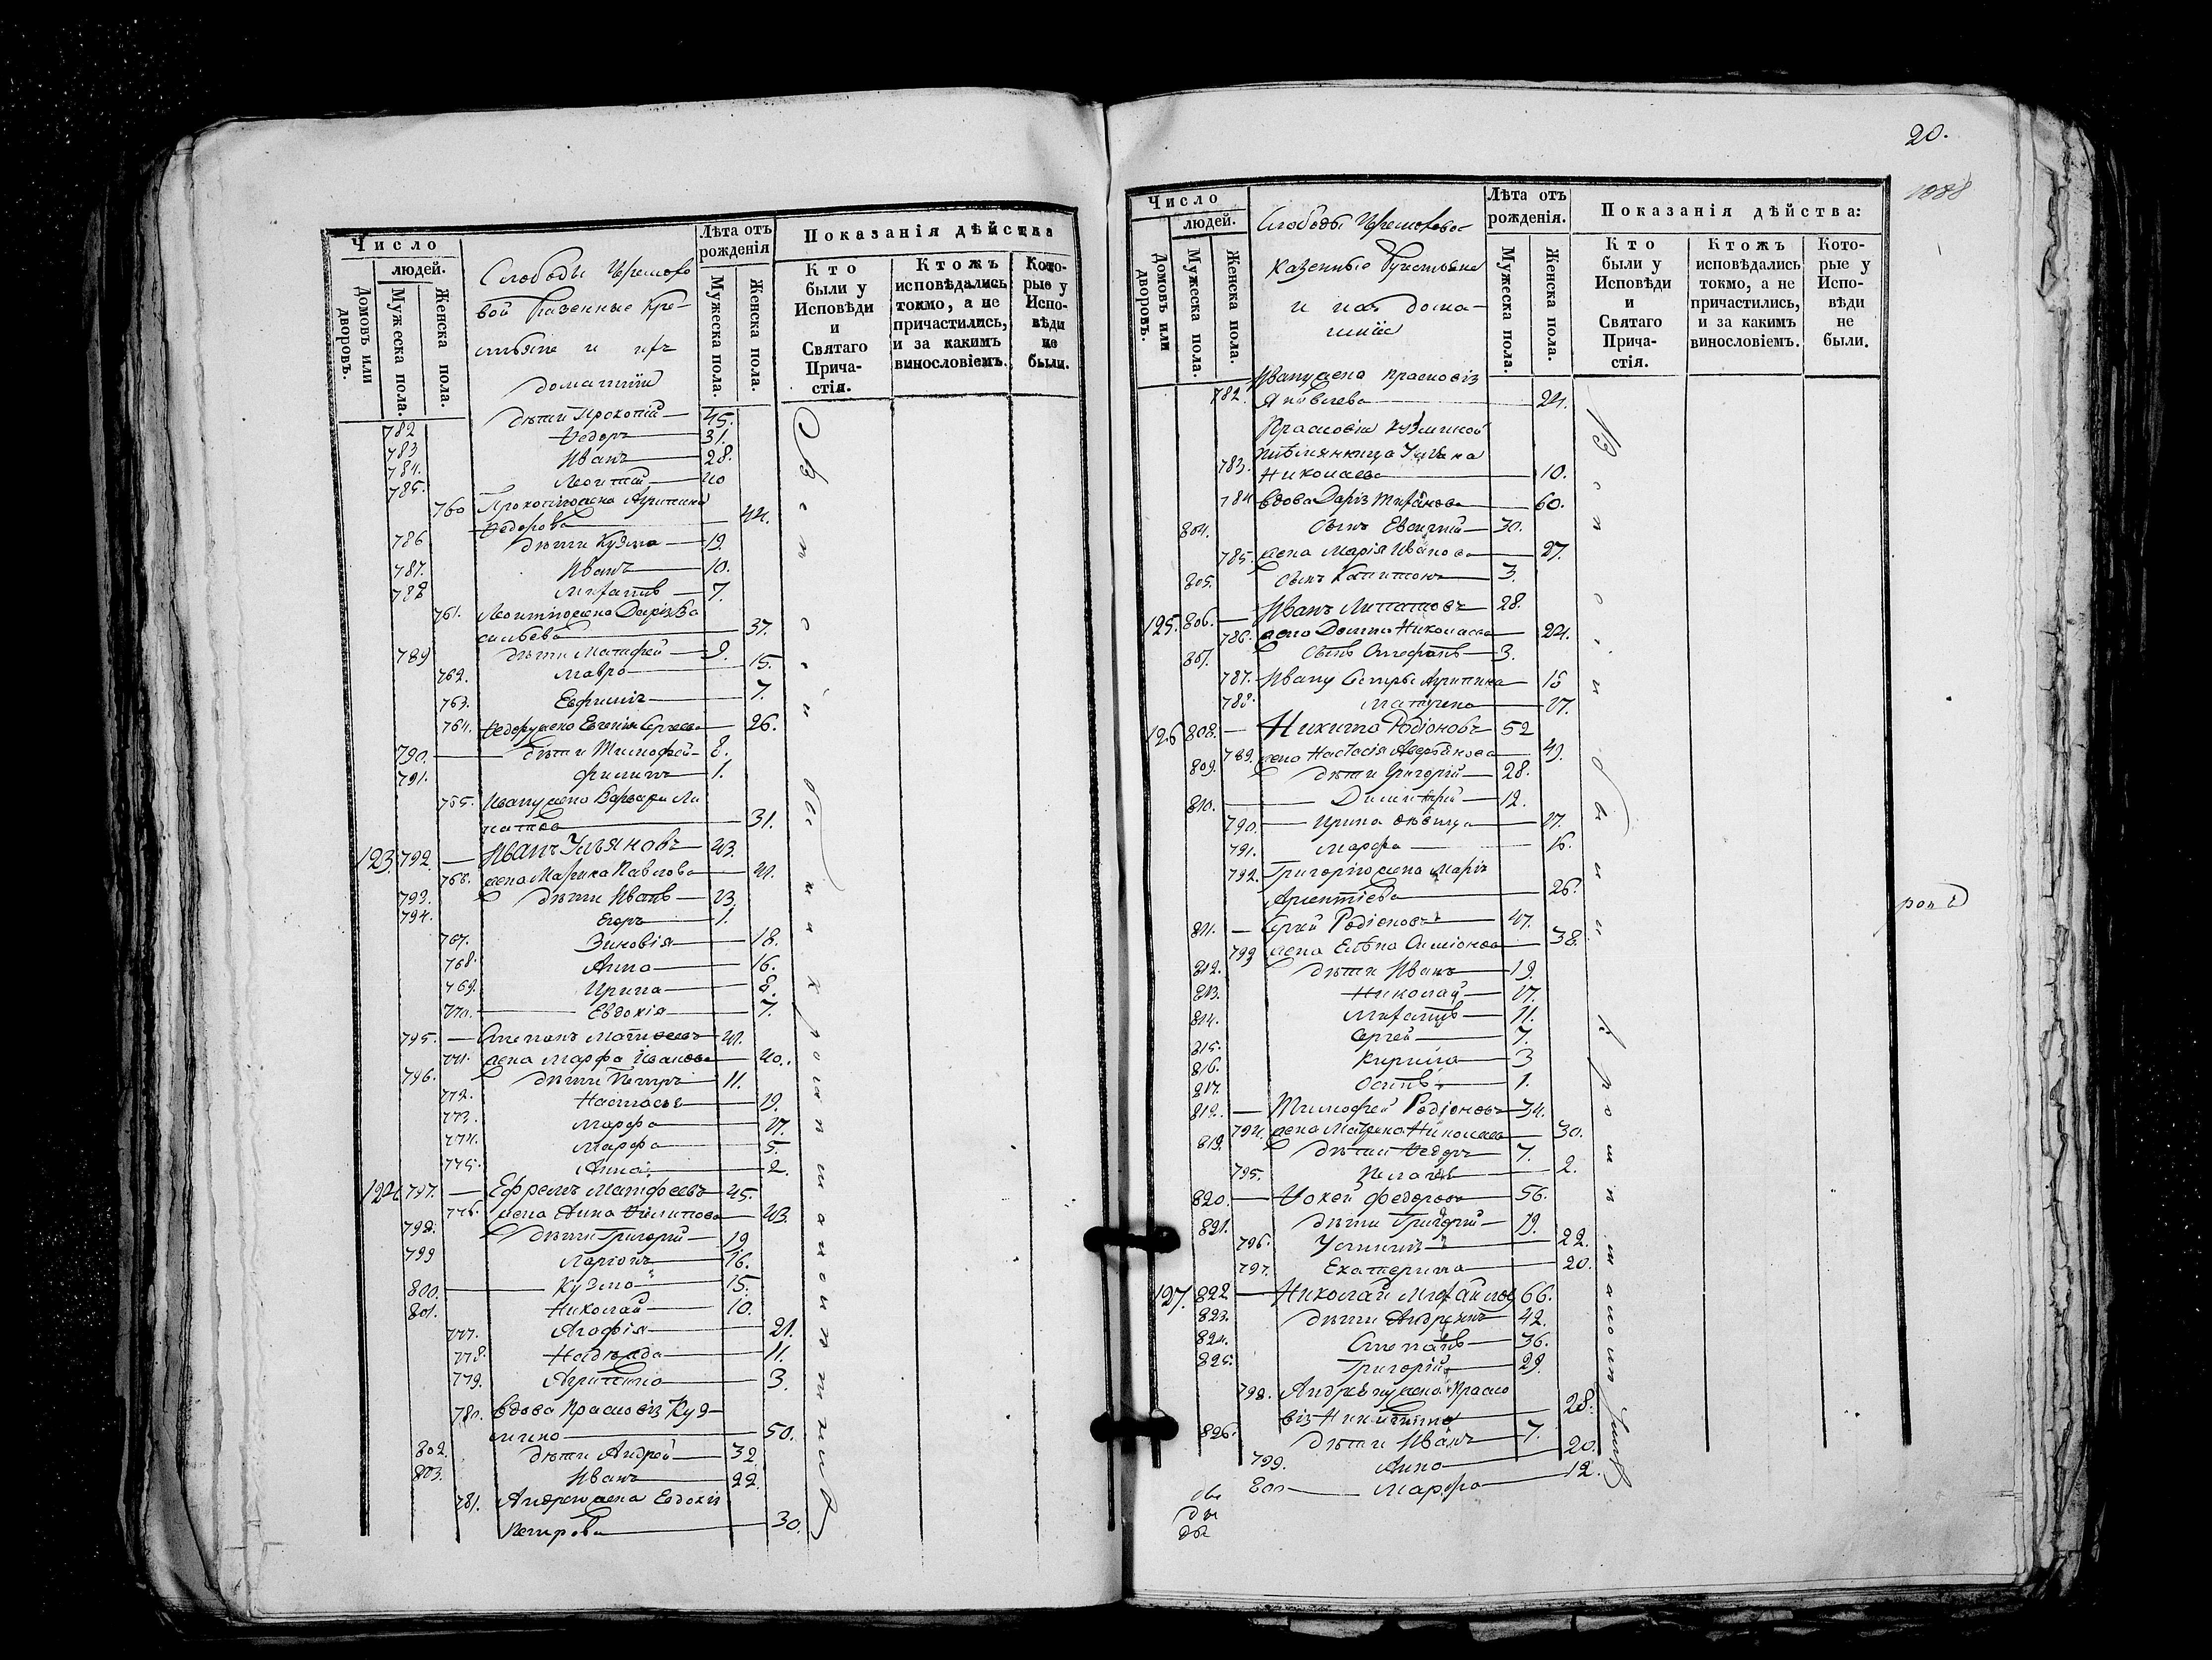 Число
людей.
Домовъ или дворовъ.
Мужеска пола.
Женска пола.
Слободы Черемхо
вой Казенные Кре-
стьяне и ихъ
домашніи
Лѣта отъ рожденія
Мужеска пола.
Женска пола.
Показанія дѣйства
Кто были у Исповѣди и Святаго Причастія.
Ктожъ исповѣдались токмо, а не причастились, и за какимъ винословіемъ.
Которые у Исповѣди не были.
782 дѣти Прокопій 45.
783 Ѳедоръ 31.
784. Иванъ 28.
785. Леонтій 40
760 Прокопію жена Агрипина
Ѳедорова 44.
786 дѣти Кузма 19.
787. Иванъ 10.
788 Михаилъ 7.
761. Леонтію жена Дарія Ва
сильева 37.
789 дѣти Матфей 9.
762. Мавра 15.
763. Ефимія 7.
764. Ѳедору жена Евгенія Сергеева 26.
790. дѣти Тимофей 8.
791. Филипъ 1.
765. Ивану жена Варвара Ли
патова 31.
123. 792. Иванъ Ульяновъ 43.
766. жена Марина Павлова 41.
793. дѣти Иванъ 23.
794. Егоръ 1.
767. Зиновія 18.
768. Анна 16.
769. Ирина 8.
770. Евдокія 7.
795. Степанъ Матвеевъ 41.
771. жена Марфа Иванова 40.
796. дѣти Петръ 11.
772. Настасья 19.
773. Марфа 17.
774. Марфа 5.
775. Анна 2.
124 797. Ефремъ Матфеевъ 45.
776. жена Анна Филипова 43.
798. дѣти Григорій 19
799 Ларіонъ 16.
800. Кузма 15.
801. Николай 10.
777. Агафія 21.
778. Надежда 11.
779. Агрипина 3.
780. вдова Прасковія Куз-
мина 50.
802. дѣти Андрей 32.
803. Иванъ 22.
781. Андрею жена Евдокія
Петрова 30.
20.
Число
людей.
Домовъ или дворовъ.
Мужеска пола.
Женска пола.
Слободы Черемховой
казенные Крестьяне
и ихъ дома-
шніи
Лѣта отъ рожденія.
Мужеска пола.
Женска пола.
Показанія дѣйства:
Кто были у Исповѣди и Святаго Причастія.
Ктожъ исповѣдались токмо, а не причастились, и за какимъ винословіемъ.
Которые у Исповѣди не были.
782. Ивану жена Прасковія
Яковлева 24.
Прасковіи Кузминой
783. Николаева 10.
784 вдова Дарія 60.
804. сынъ Евсигній 30.
785. жена Марія Иванова 27.
805. сынъ Капитонъ 3.
125. 806. Иванъ Липатовъ 28.
786. жена Домна Николаева 24.
807. сынъ Стефанъ 3.
787. Ивану Сестры Агрипина 18
788. Матрена 17.
126 808. Никита Родіоновъ 52
789. жена Настасія Аверьянова 49.
809. дѣти Григорій 28.
810. Димитрій 12.
790. Ирина дѣвица 17.
791. Марфа 16.
792. Григорію жена Марія
Арентіева 26.
811. Сергей Родіоновъ 47.
793 жена Елена Симіонова 38.
812. дѣти Иванъ 19.
813. Николай 17.
814. Михаилъ 11.
815. Сергей 7.
816. Кирила 3
817. Осипъ 1.
818. Тимофей Родіоновъ 34.
794. жена Матрена Николаева 30.
819. дѣти Ѳедоръ 7.
795. Пелагея 2.
820. Ѳокей Федоровъ 56.
821. дѣти Григорій 19.
796. Устинія 22.
797. Екатерина 20.
127. 822. Николай Михайловъ 66.
823. дѣти Андреянъ 42.
824. Степанъ 36.
825. Григорій 29.
798. Андреяну жена Праско
вія Никитина 28.
826. дѣти Иванъ 7.
799. Анна 20.
800 Марфа 12.